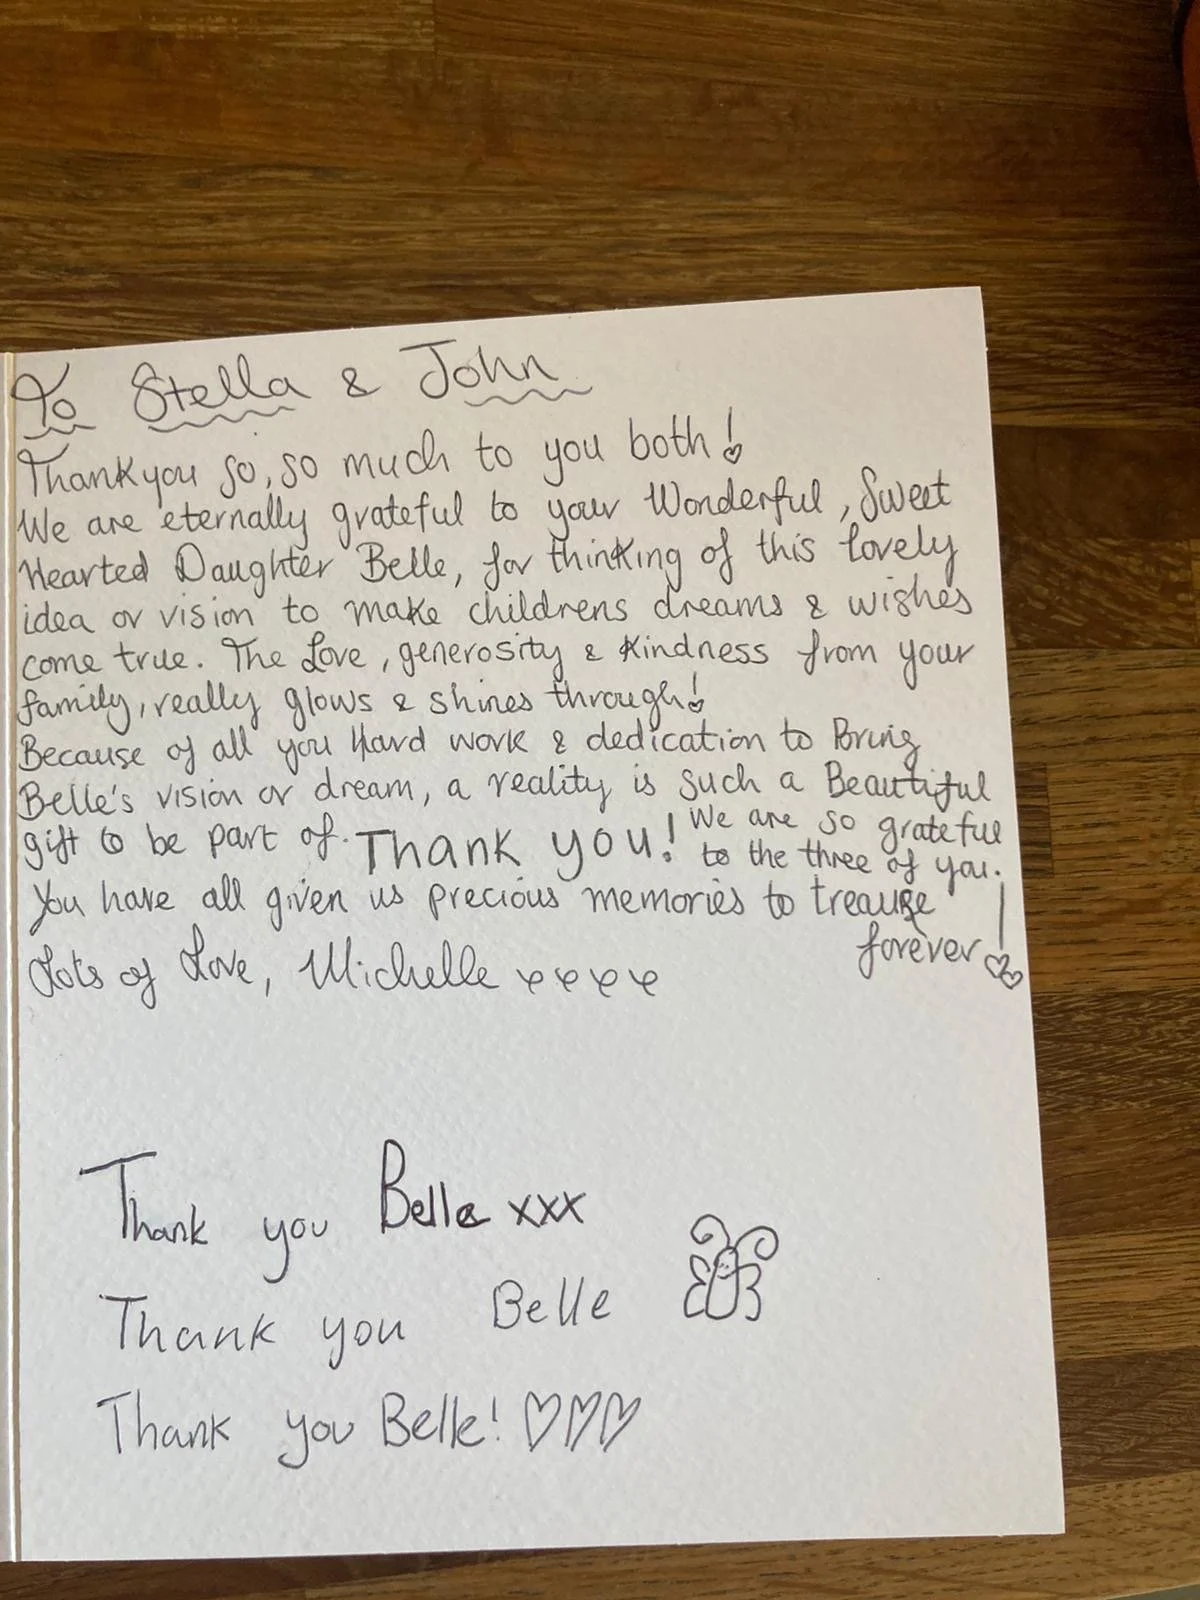 To Stella & John
Thankyou so, so much to you both!
We are eternally grateful to your Wonderful, Sweet
Hearted Daughter Belle, for thinking of this lovely
idea or vision to make childrens dreams & wishes
come true. The Love, generosity & Kindness from your
family, really glows & shines through!
Because of all you Hard work & dedication to Bring
Belle's vision or dream, a reality is such a Beautiful
gift to be part of. Thank you! We are so grateful
to the three of you.
You have all given us precious memories to treause
forever!
Lots of Love, Michelle xxxx
Thank you Belle xxx
Thank you Belle
Thank you Belle!